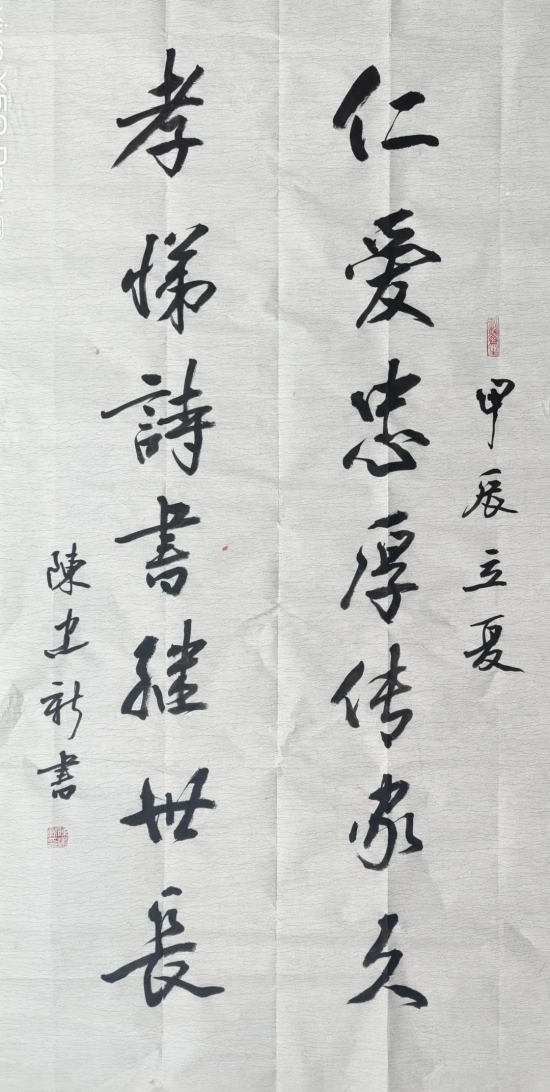 甲辰立夏
仁爱忠厚传家久
孝悌詩書继世長
陳建新書